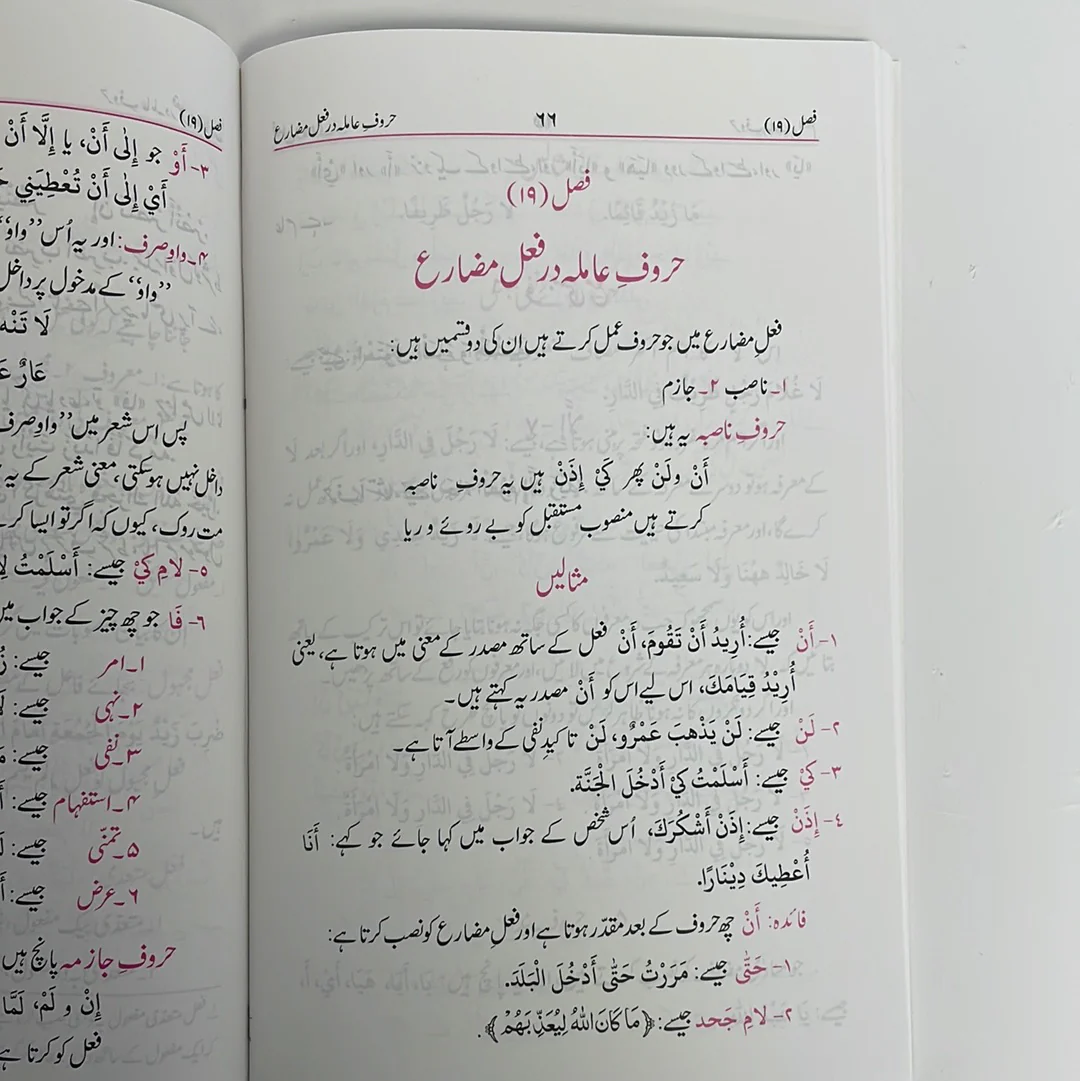 فصل (۱۹)
۶۶
حروفِ عاملہ در فعل مضارع
فصل (۱۹)
حروفِ عاملہ در فعل مضارع
فعلِ مضارع میں جو حروف عمل کرتے ہیں ان کی دو قسمیں ہیں:
۱۔ ناصب ۲۔ جازم
حروفِ ناصبہ یہ ہیں:
أَنْ ولَنْ پھر كَيْ إِذَنْ ہیں یہ حروفِ ناصبہ
کرتے ہیں منصوب مستقبل کو بے روئے و ریا
مثالیں
۱- أَنْ جیسے: أُرِيدُ أَنْ تَقُومَ، أَنْ فعل کے ساتھ مصدر کے معنی میں ہوتا ہے، یعنی
أُرِيْدُ قِيَامَكَ، اس لیے اس کو أَنْ مصدریہ کہتے ہیں۔
۲- لَنْ جیسے: لَنْ يَذْهَبَ عَمْرٌو، لَنْ تاکیدِ نفی کے واسطے آتا ہے۔
۳- كَيْ جیسے: أَسْلَمْتُ كَيْ أَدْخُلَ الْجَنَّة.
٤- إِذَنْ جیسے: إِذَنْ أَشْكُرَكَ، اُس شخص کے جواب میں کہا جائے جو کہے: أَنَا
أُعْطِيكَ دِيْنَارًا.
فائدہ: أَنْ چھ حروف کے بعد مقدّر ہوتا ہے اور فعلِ مضارع کو نصب کرتا ہے:
۱- حَتّٰی جیسے: مَرَرْتُ حَتّٰى أَدْخُلَ الْبَلَدَ.
۲- لامِ جَحد جیسے: ﴿مَا كَانَ اللّٰهُ لِيُعَذِّبَهُمْ﴾.
فصل (۱۹)
۳- أَوْ جو إِلٰى أَنْ، یا إِلَّا أَنْ
أَيْ إِلٰى أَنْ تُعْطِيَنِي
۴۔ واوِ صرف: اور یہ اُس ”واوٗ“
”واوٗ“ کے مدخول پر داخل
لَا تَنْهَ
عَارٌ
پس اس شعر میں ”واوِ صرف
داخل نہیں ہوسکتی، معنی شعر کے یہ
مت روک، کیوں کہ اگر تو ایسا کرے
۵- لامِ كَيْ جیسے: أَسْلَمْتُ
۶- فَا جو چھ چیز کے جواب میں
۱۔ امر جیسے:
۲۔ نہی جیسے:
۳۔ نفی جیسے:
۴۔ استفہام جیسے:
۵۔ تمنّی جیسے:
۶۔ عرض جیسے:
حروفِ جازمہ پانچ ہیں
إِنْ و لَمْ، لَمَّا
فعل کو کرتا